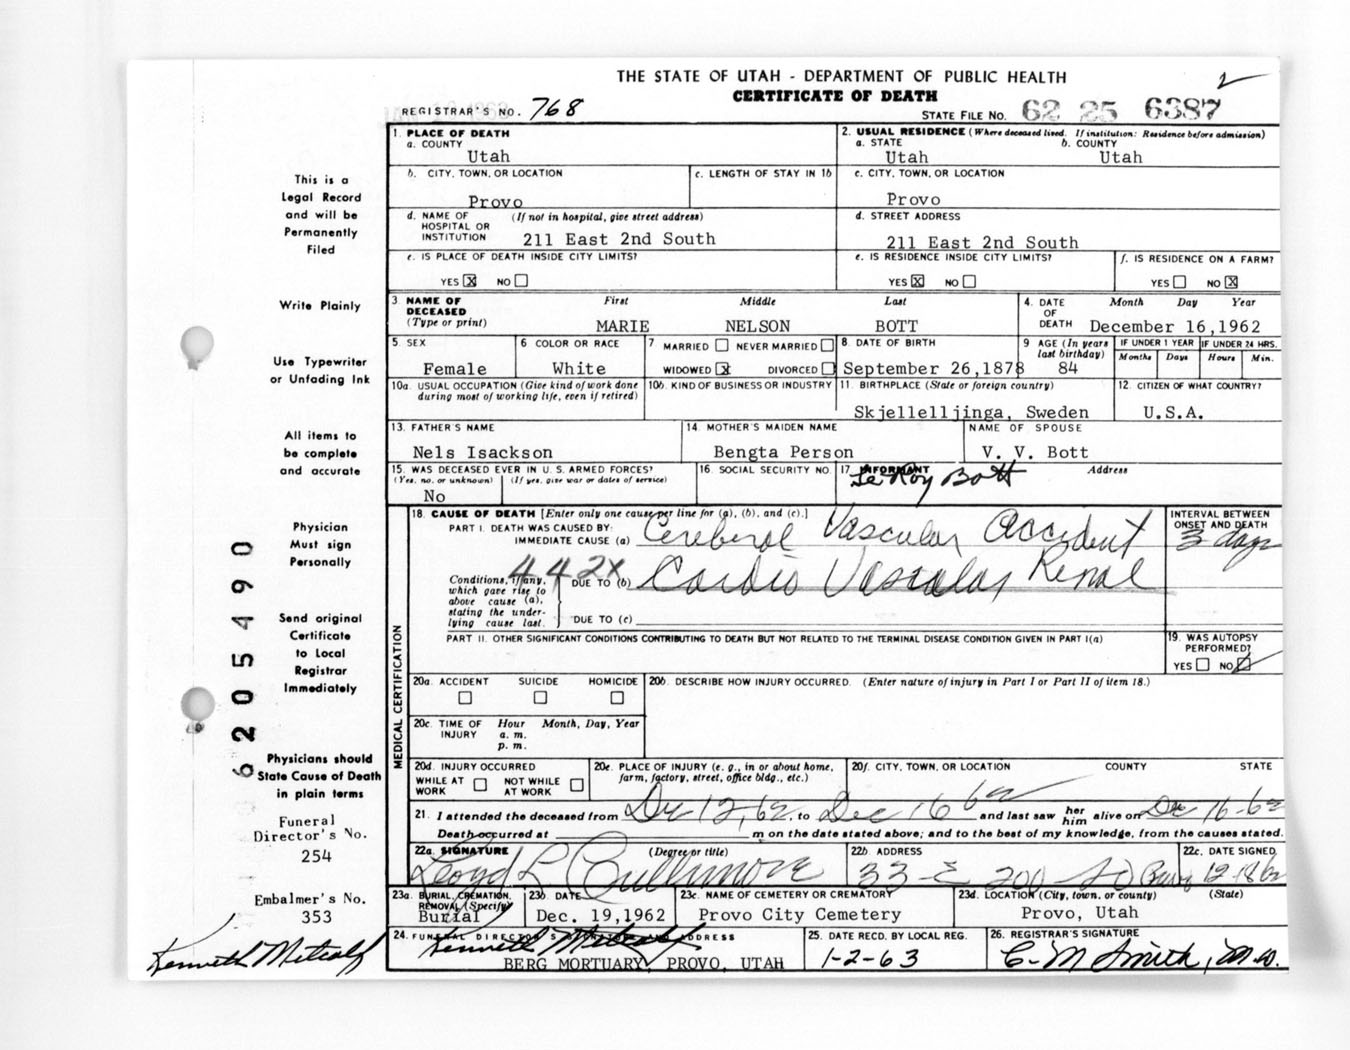 THE STATE OF UTAH - DEPARTMENT OF PUBLIC HEALTH
2
CERTIFICATE OF DEATH
REGISTRAR'S NO. 768
STATE FILE NO. 62 25 6387
1. PLACE OF DEATH
a. COUNTY
Utah
2. USUAL RESIDENCE (Where deceased lived. If institution: Residence before admission)
a. STATE b. COUNTY
Utah Utah
b. CITY, TOWN, OR LOCATION
Provo
c. LENGTH OF STAY IN 1b
c. CITY, TOWN, OR LOCATION
Provo
d. NAME OF HOSPITAL OR INSTITUTION (If not in hospital, give street address)
211 East 2nd South
d. STREET ADDRESS
211 East 2nd South
e. IS PLACE OF DEATH INSIDE CITY LIMITS?
YES X NO
e. IS RESIDENCE INSIDE CITY LIMITS?
YES X NO
f. IS RESIDENCE ON A FARM?
YES NO X
3. NAME OF DECEASED (Type or print) First Middle Last
MARIE NELSON BOTT
4. DATE OF DEATH Month Day Year
December 16,1962
5. SEX
Female
6 COLOR OR RACE
White
7 MARRIED NEVER MARRIED
WIDOWED X DIVORCED
8. DATE OF BIRTH
September 26,1878
9 AGE (In years last birthday)
84
IF UNDER 1 YEAR IF UNDER 24 HRS.
Months Days Hours Min.
10a. USUAL OCCUPATION (Give kind of work done during most of working life, even if retired)
10b. KIND OF BUSINESS OR INDUSTRY
11. BIRTHPLACE (State or foreign country)
Skjellelljinga, Sweden
12. CITIZEN OF WHAT COUNTRY?
U.S.A.
13. FATHER'S NAME
Nels Isackson
14. MOTHER'S MAIDEN NAME
Bengta Person
NAME OF SPOUSE
V. V. Bott
15. WAS DECEASED EVER IN U. S. ARMED FORCES?
(Yes, no, or unknown) (If yes, give war or dates of service)
No
16. SOCIAL SECURITY NO.
17. INFORMANT Address
LeRoy Bott
MEDICAL CERTIFICATION
18. CAUSE OF DEATH [Enter only one cause per line for (a), (b), and (c).]
PART I. DEATH WAS CAUSED BY:
IMMEDIATE CAUSE (a) Cerebral Vascular Accident
INTERVAL BETWEEN ONSET AND DEATH
3 days
442X
Conditions, if any, which gave rise to above cause (a), stating the underlying cause last.
DUE TO (b) Cardio Vascular Renal
DUE TO (c)
PART II. OTHER SIGNIFICANT CONDITIONS CONTRIBUTING TO DEATH BUT NOT RELATED TO THE TERMINAL DISEASE CONDITION GIVEN IN PART I(a)
19. WAS AUTOPSY PERFORMED?
YES NO
20a. ACCIDENT SUICIDE HOMICIDE
20b. DESCRIBE HOW INJURY OCCURRED. (Enter nature of injury in Part I or Part II of item 18.)
20c. TIME OF INJURY Hour Month, Day, Year
a. m.
p. m.
20d. INJURY OCCURRED
WHILE AT WORK NOT WHILE AT WORK
20e. PLACE OF INJURY (e. g., in or about home, farm, factory, street, office bldg., etc.)
20f. CITY, TOWN, OR LOCATION COUNTY STATE
21. I attended the deceased from Dec 12, 62, to Dec 16 62 and last saw her him alive on Dec 16-62
Death occurred at m on the date stated above; and to the best of my knowledge, from the causes stated.
22a. SIGNATURE (Degree or title)
Lloyd L Cullimore
22b. ADDRESS
33 E 200 So Provo
22c. DATE SIGNED
12-18-62
23a. BURIAL, CREMATION, REMOVAL (Specify)
Burial
23b. DATE
Dec. 19,1962
23c. NAME OF CEMETERY OR CREMATORY
Provo City Cemetery
23d. LOCATION (City, town, or county) (State)
Provo, Utah
24. FUNERAL DIRECTOR'S SIGNATURE AND ADDRESS
Kenneth Metcalf
BERG MORTUARY, PROVO, UTAH
25. DATE RECD. BY LOCAL REG.
1-2-63
26. REGISTRAR'S SIGNATURE
C. M Smith, M.D.
This is a
Legal Record
and will be
Permanently
Filed
Write Plainly
Use Typewriter
or Unfading Ink
All items to
be complete
and accurate
Physician
Must sign
Personally
Send original
Certificate
to Local
Registrar
Immediately
Physicians should
State Cause of Death
in plain terms
Funeral
Director's No.
254
Embalmer's No.
353
Kenneth Metcalf
6205490